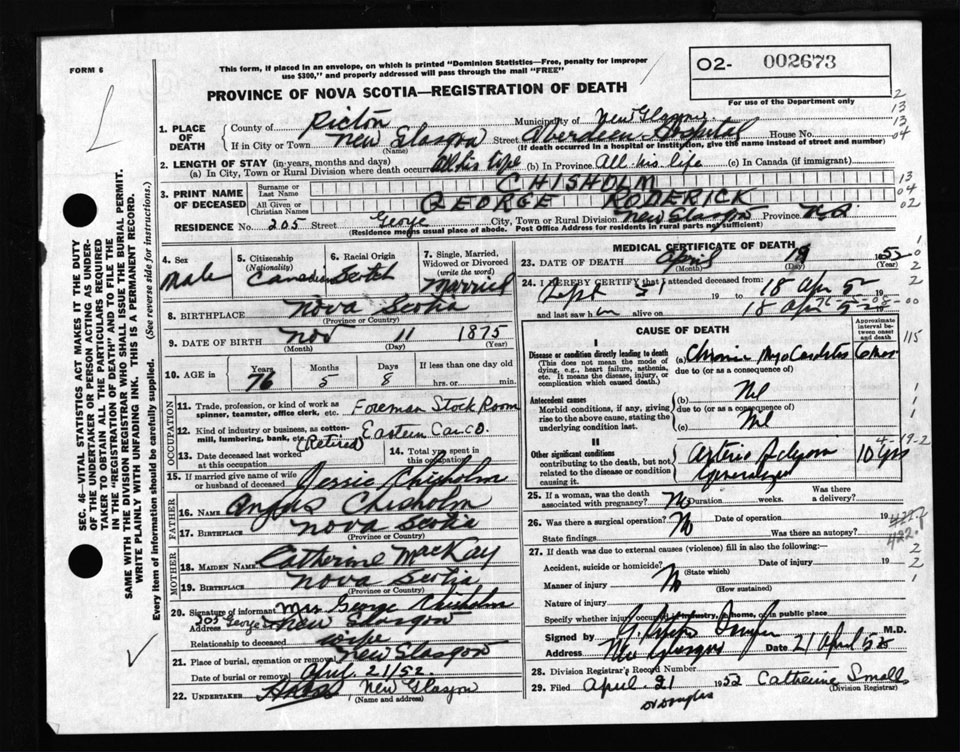 FORM 6
This form, if placed in an envelope, on which is printed "Dominion Statistics—Free, penalty for improper
use $300," and properly addressed will pass through the mail "FREE"
O2- 002673
For use of the Department only
PROVINCE OF NOVA SCOTIA—REGISTRATION OF DEATH
1. PLACE OF DEATH
County of Pictou Municipality of New Glasgow
If in City or Town New Glasgow Street Aberdeen Hospital House No.
(Name) (If death occurred in a hospital or institution, give the name instead of street and number)
2. LENGTH OF STAY (in years, months and days)
(a) In City, Town or Rural Division where death occurred All his life (b) In Province All his life (c) In Canada (if immigrant)
3. PRINT NAME OF DECEASED
Surname or Last Name CHISHOLM
All Given or Christian Names GEORGE RODERICK
RESIDENCE No. 205 Street George City, Town or Rural Division New Glasgow Province N.S.
(Residence means usual place of abode. Post Office Address for residents in rural parts not sufficient)
4. Sex Male
5. Citizenship (Nationality) Canadian
6. Racial Origin Scotch
7. Single, Married, Widowed or Divorced (write the word) Married
8. BIRTHPLACE Nova Scotia
(Province or Country)
9. DATE OF BIRTH Nov 11 1875
(Month) (Day) (Year)
10. AGE in Years 76 Months 5 Days 8 hrs. or min.
OCCUPATION
11. Trade, profession, or kind of work as spinner, teamster, office clerk, etc. Foreman Stock Room
12. Kind of industry or business, as cotton-mill, lumbering, bank, etc. (Retired) Eastern Car Co.
13. Date deceased last worked at this occupation
14. Total yrs spent in this occupation
15. If married give name of wife or husband of deceased Jessie Chisholm
FATHER
16. NAME Angus Chisholm
17. BIRTHPLACE Nova Scotia
(Province or Country)
MOTHER
18. MAIDEN NAME Catherine MacKay
19. BIRTHPLACE Nova Scotia
(Province or Country)
20. Signature of informant Mrs George Chisholm
Address 205 George New Glasgow
Relationship to deceased wife
21. Place of burial, cremation or removal New Glasgow
Date of burial or removal April 21/52
22. UNDERTAKER New Glasgow
(Name and address)
MEDICAL CERTIFICATE OF DEATH
23. DATE OF DEATH April 19 1952
(Month) (Day) (Year)
24. I HEREBY CERTIFY that I attended deceased from:
Sept 51 19 to 18 Apr 52 19
and last saw him alive on 18 Apr 52
CAUSE OF DEATH
Approximate interval between onset and death
I
Disease or condition directly leading to death
(This does not mean the mode of dying, e.g., heart failure, asthenia, etc. It means the disease, injury, or complication which caused death.)
(a) Chronic Myocarditis 6 mos
due to (or as a consequence of)
Antecedent causes
Morbid conditions, if any, giving rise to the above cause, stating the underlying condition last.
(b) Nil
due to (or as a consequence of)
(c) Nil
II
Other significant conditions
contributing to the death, but not related to the disease or condition causing it.
10 yrs
4-19-2
25. If a woman, was the death associated with pregnancy? No Duration weeks. Was there a delivery?
26. Was there a surgical operation? No Date of operation 19
State findings Was there an autopsy?
27. If death was due to external causes (violence) fill in also the following:—
Accident, suicide or homicide? Date of injury 19
(State which)
Manner of injury No
(How sustained)
Nature of injury
Specify whether injury occurred in industry, home, or in public place
Signed by M.D.
Address New Glasgow Date 21 April 52
28. Division Registrar's Record Number
29. Filed April 21 1952 Catherine Small
(Division Registrar)
Dr Douglas
SEC. 46—VITAL STATISTICS ACT MAKES IT THE DUTY
OF THE UNDERTAKER OR PERSON ACTING AS UNDER-
TAKER TO OBTAIN ALL THE PARTICULARS REQUIRED
IN THE "REGISTRATION OF DEATH" AND TO FILE THE
SAME WITH THE DIVISION REGISTRAR WHO SHALL ISSUE THE BURIAL PERMIT.
WRITE PLAINLY WITH UNFADING INK. THIS IS A PERMANENT RECORD.
Every item of information should be carefully supplied. (See reverse side for instructions.)
2
13
13
04
13
04
02
115
422.